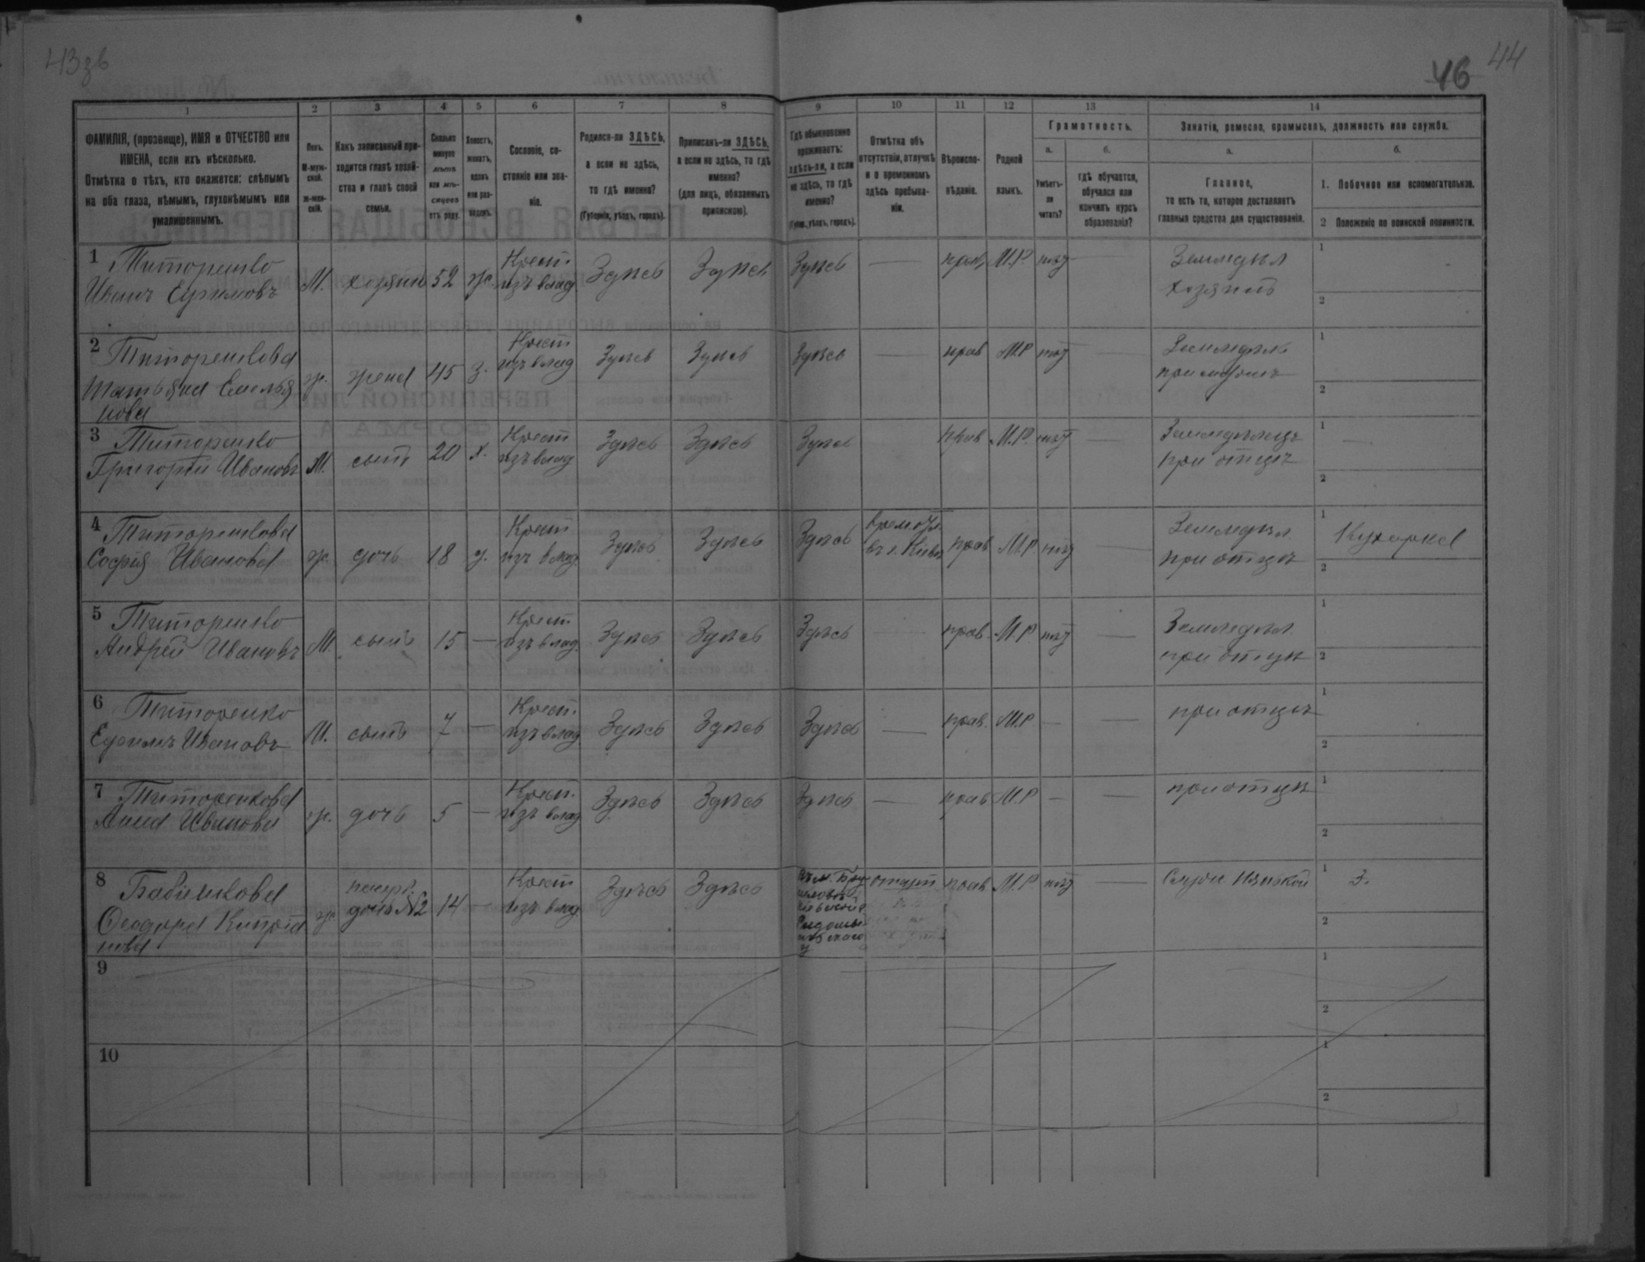 43зв
46 44
1 2 3 4 5 6 7 8 9 10 11 12 13 14
ФАМИЛІЯ, (прозвище), ИМЯ и ОТЧЕСТВО или ИМЕНА, если ихъ нѣсколько.
Отмѣтка о тѣхъ, кто окажется: слѣпымъ на оба глаза, нѣмымъ, глухонѣмымъ или умалишеннымъ.
Полъ. М-мужской. ж-женскій.
Какъ записанный приходится главѣ хозяйства и главѣ своей семьи.
Сколько минуло лѣтъ или мѣсяцевъ отъ роду.
Холостъ, женатъ, вдовъ или разведенъ.
Сословіе, состояніе или званіе.
Родился-ли ЗДѢСЬ, а если не здѣсь, то гдѣ именно?
(Губернія, уѣздъ, городъ).
Приписанъ-ли ЗДѢСЬ, а если не здѣсь, то гдѣ именно?
(для лицъ, обязанныхъ припискою).
Гдѣ обыкновенно проживаетъ: здѣсь-ли, а если не здѣсь, то гдѣ именно?
(Губер., уѣздъ, городъ).
Отмѣтка объ отсутствіи, отлучкѣ и о временномъ здѣсь пребываніи.
Вѣроисповѣданіе.
Родной языкъ.
Грамотность.
а. Умѣетъ-ли читать?
б. гдѣ обучается, обучался или кончилъ курсъ образованія?
Занятія, ремесло, промыселъ, должность или служба.
а. Главное, то есть то, которое доставляетъ главныя средства для существованія.
б. 1. Побочное или вспомогательное.
2 Положеніе по воинской повинности.
1 Титоренко Иванъ Ефимовъ М. хозяинъ 52 ж. Крест. изъ влад. Здѣсь Здѣсь Здѣсь — прав. М.Р. нѣт Земледѣл хозяинъ 1 2
2 Титоренкова Татьяна Емельянова ж. жена 45 з. Крест изъ влад Здѣсь Здѣсь Здѣсь — прав М.Р нѣт — Земледѣл при мужѣ 1 2
3 Титоренко Григорій Ивановъ М. сынъ 20 х. Крест изъ влад Здѣсь Здѣсь Здѣсь прав М.Р. нѣт — Земледѣлецъ при отцѣ 1 — 2
4 Титоренкова Софія Иванова ж. дочь 18 Крест изъ влад. Здѣсь Здѣсь Здѣсь въ г. Кіевѣ прав М.Р нѣт — Земледѣл при отцѣ 1 Кухарка 2
5 Титоренко Андрей Ивановъ М. сынъ 15 — Крест изъ влад. Здѣсь Здѣсь Здѣсь — прав. М.Р нѣт — Земледѣл при отцѣ 1 2
6 Титоренко Ефимъ Ивановъ М. сынъ 7 — Крест. изъ влад Здѣсь Здѣсь Здѣсь — прав. М.Р — — при отцѣ 1 2
7 Титоренкова Анна Иванова ж. дочь 5 — Крест. изъ влад Здѣсь Здѣсь Здѣсь — прав М.Р — — при отцѣ 1 2
8 Феодора ж. дочь №2 14 — Крест изъ влад Здѣсь Здѣсь прав М.Р нѣт — 1 3. 2
9 1 2
10 1 2